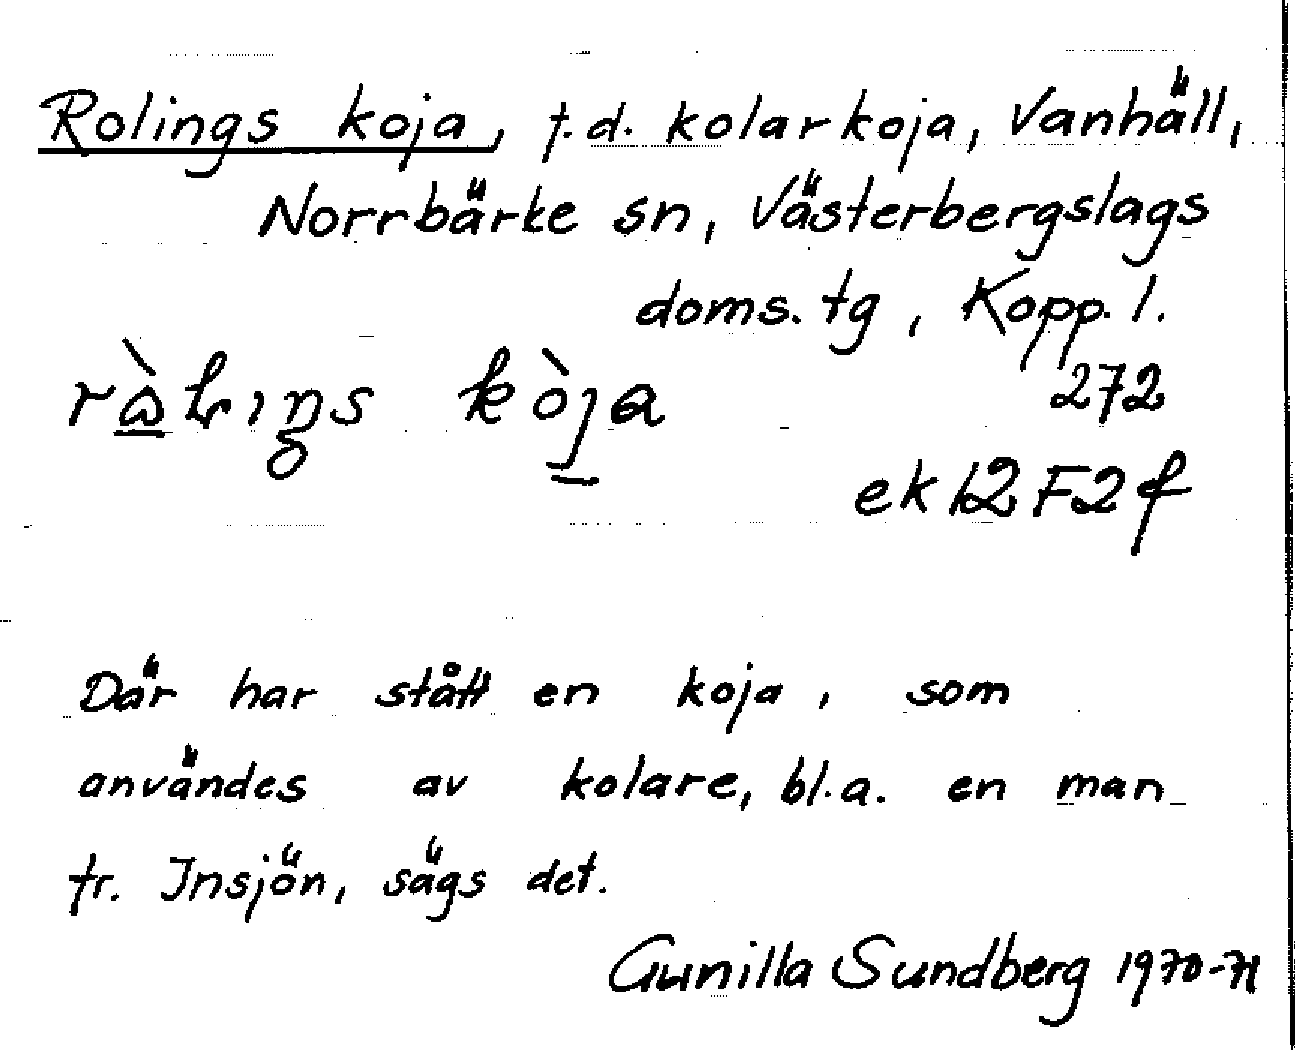 Rolings koja, f.d. kolarkoja, Vanhäll,
Norrbärke sn, Västerbergslags
doms. tg, Kopp. l.
272
ek 12 F 2 f
Där har stått en koja, som
användes av kolare, bl.a. en man
fr. Insjön, sägs det.
Gunilla Sundberg 1970-71